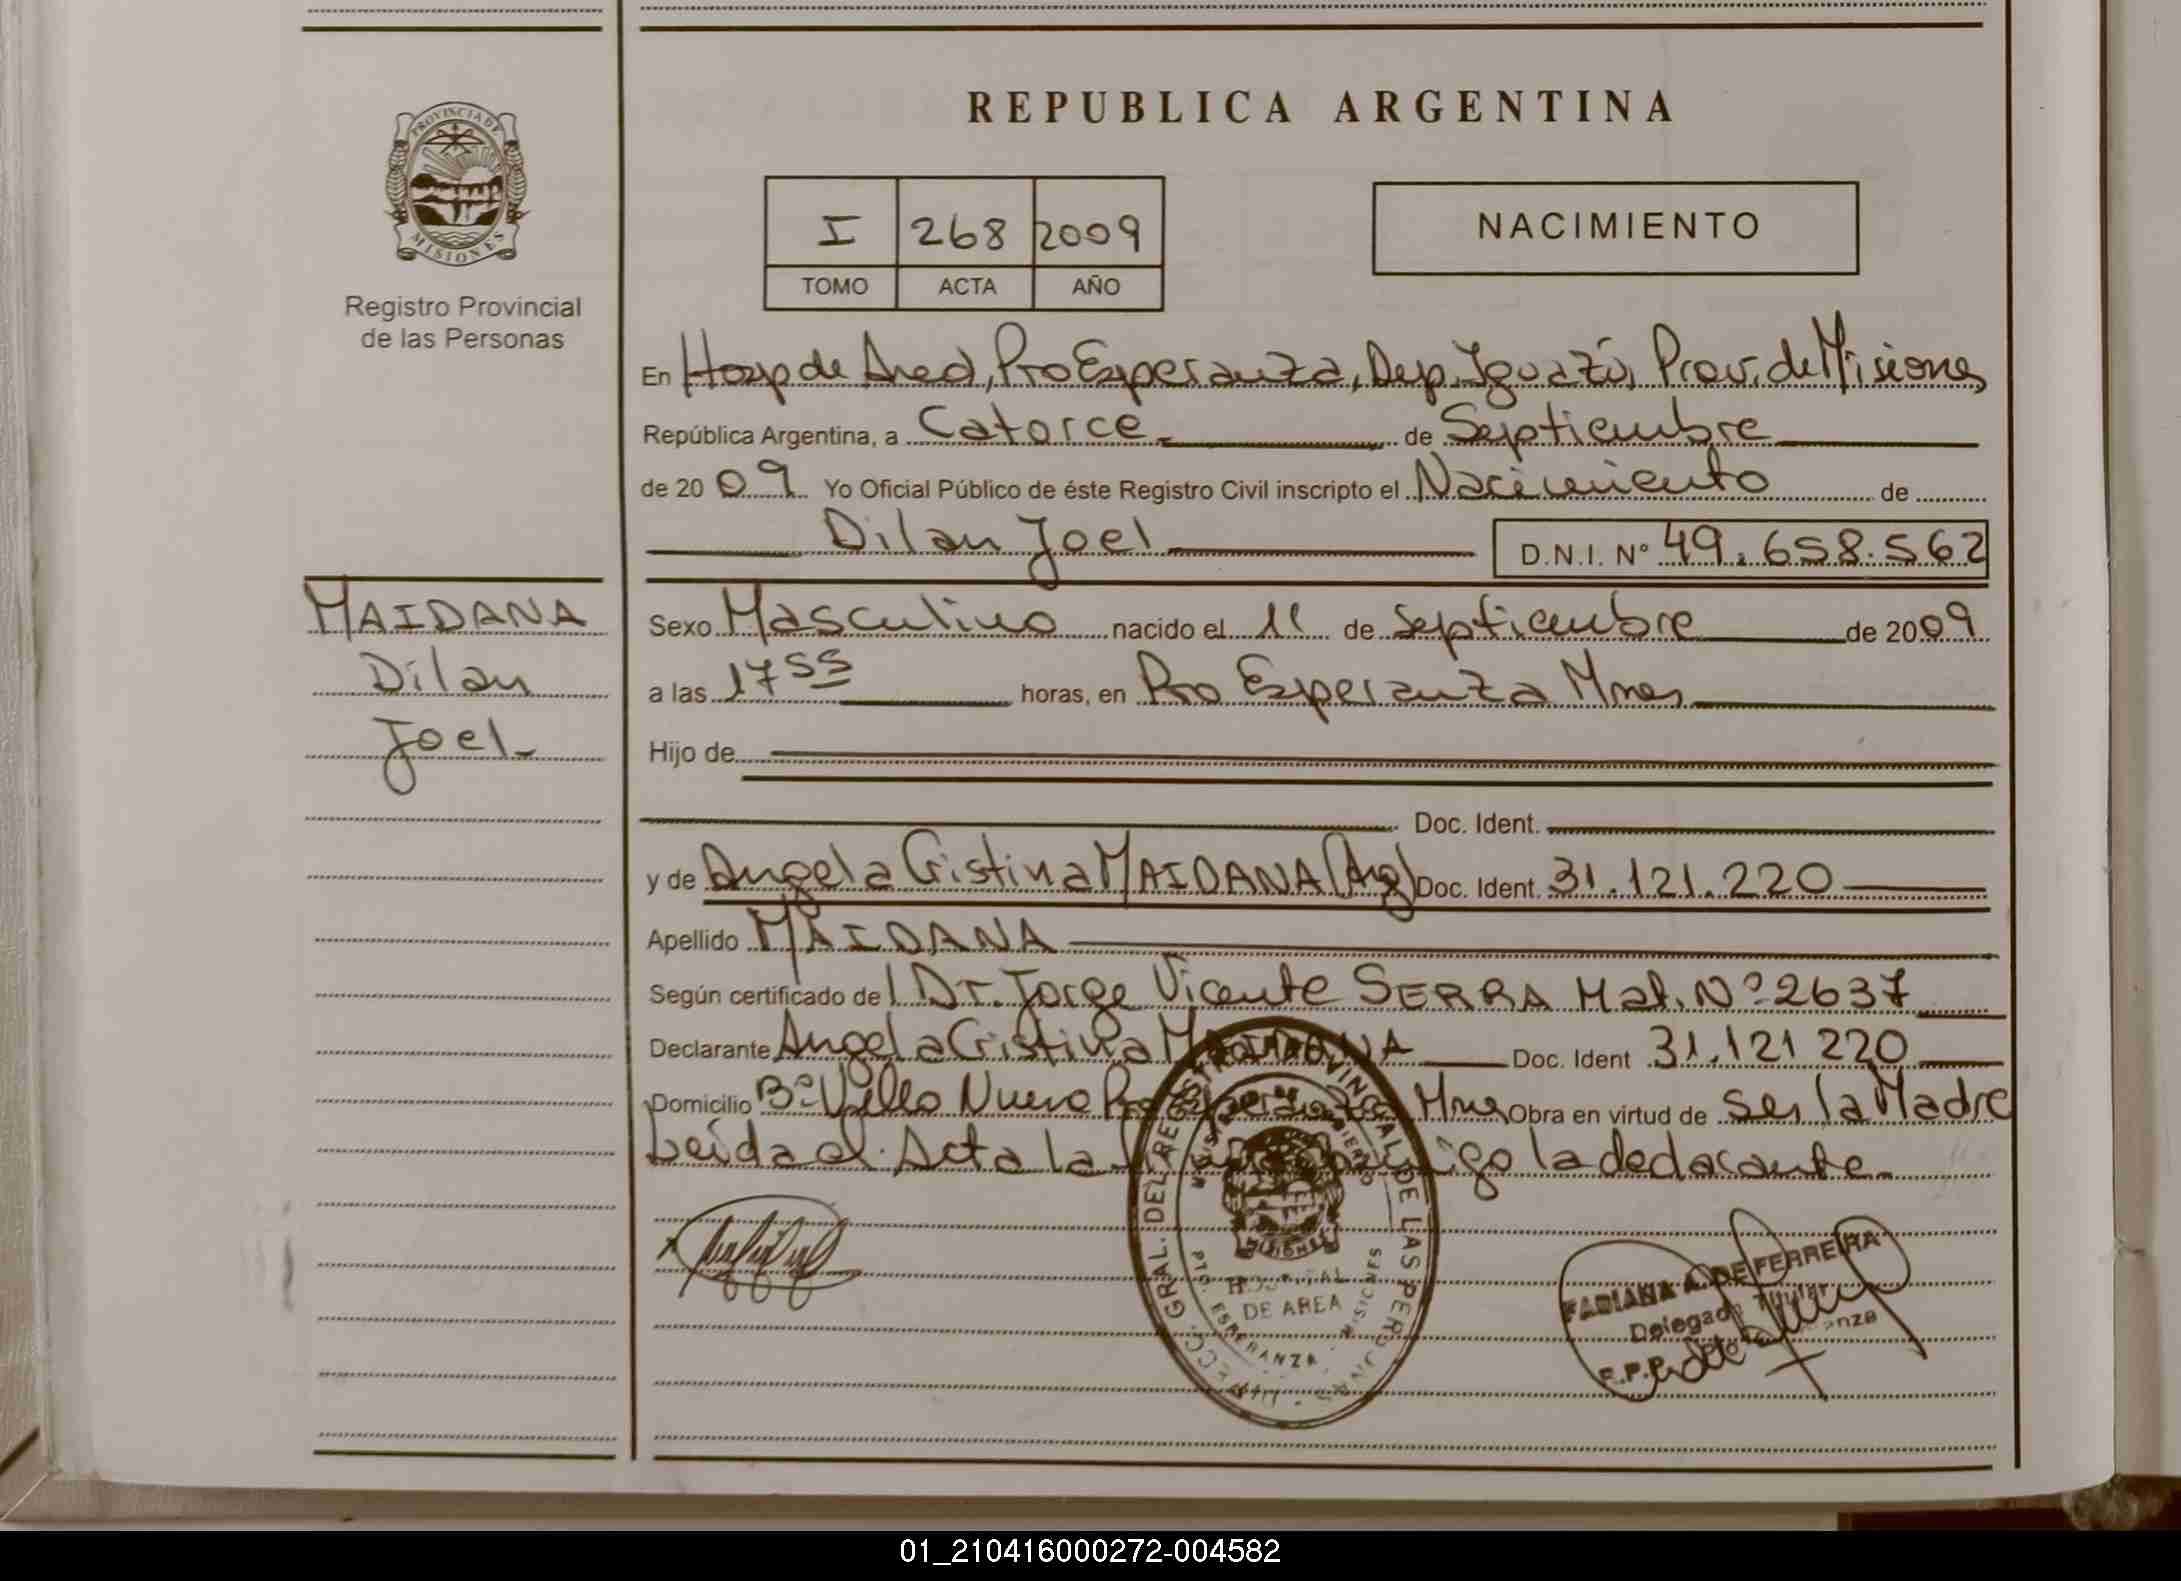 REPUBLICA ARGENTINA
PROVINCIA DE
MISIONES
Registro Provincial
de las Personas
I 268 2009
TOMO ACTA AÑO
NACIMIENTO
En Hosp de Area, Pto Esperanza, Dep. Iguazú, Prov. de Misiones
República Argentina, a Catorce de Septiembre
de 2009 Yo Oficial Público de éste Registro Civil inscripto el Nacimiento de
Dilan Joel D.N.I. Nº 49.658.562
MAIDANA
Dilan
Joel
Sexo Masculino nacido el 11 de Septiembre de 2009
a las 17 55 horas, en Pto Esperanza Mnes
Hijo de
Doc. Ident.
y de Angela Cristina MAIDANA (Arg) Doc. Ident. 31.121.220
Apellido MAIDANA
Según certificado de l Dr. Jorge Vicente SERRA Mat. Nº 2637
Declarante Angela Cristina MAIDANA Doc. Ident 31.121 220
Domicilio Bº Villa Nueva Pto Esperanza Mnes Obra en virtud de ser la Madre
Leida el Acta la la declarante.
DIRECC. GRAL. DEL REGISTRO PROVINCIAL DE LAS PERSONAS
MISIONES
HOSPITAL
DE AREA
PTO. ESPERANZA - MISIONES
FABIANA A. DE FERREIRA
Delegada Titular
01_210416000272-004582